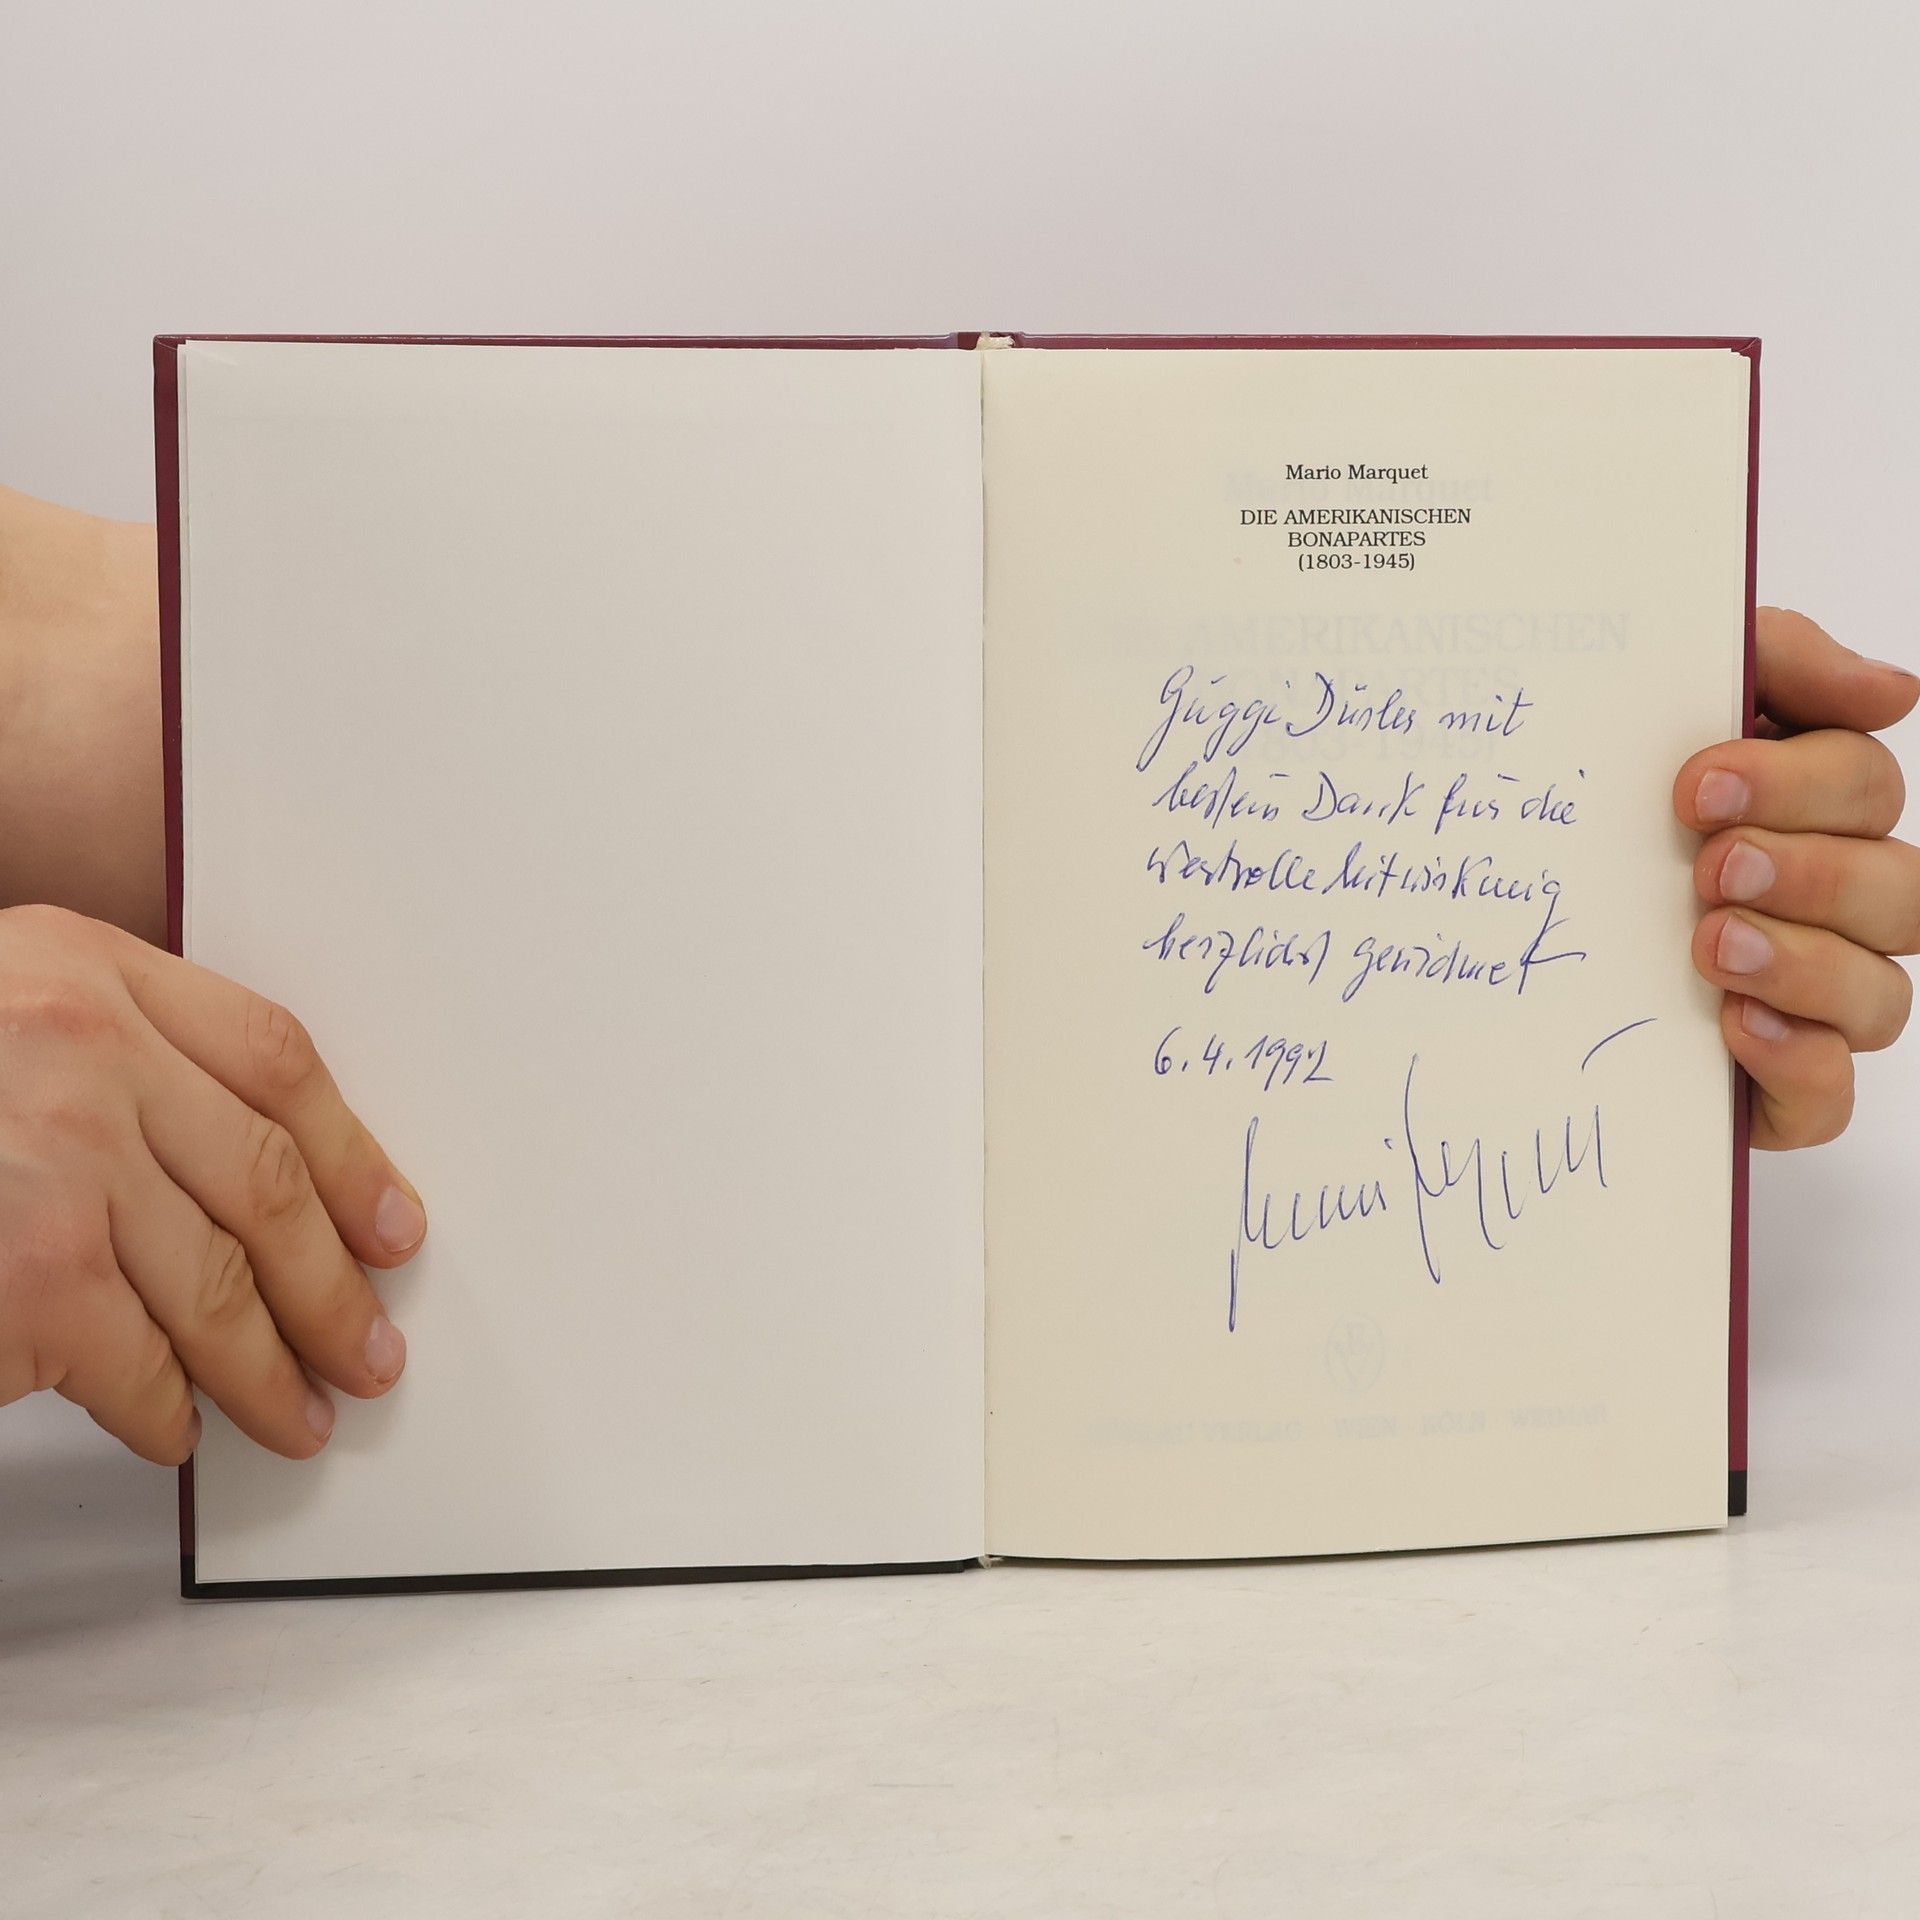 Mario Marquet
DIE AMERIKANISCHEN
BONAPARTES
(1803-1945)
Guggi Düsler mit
bestem Dank für die
wertvolle Mitwirkung
herzlichst gewidmet
6.4.1992